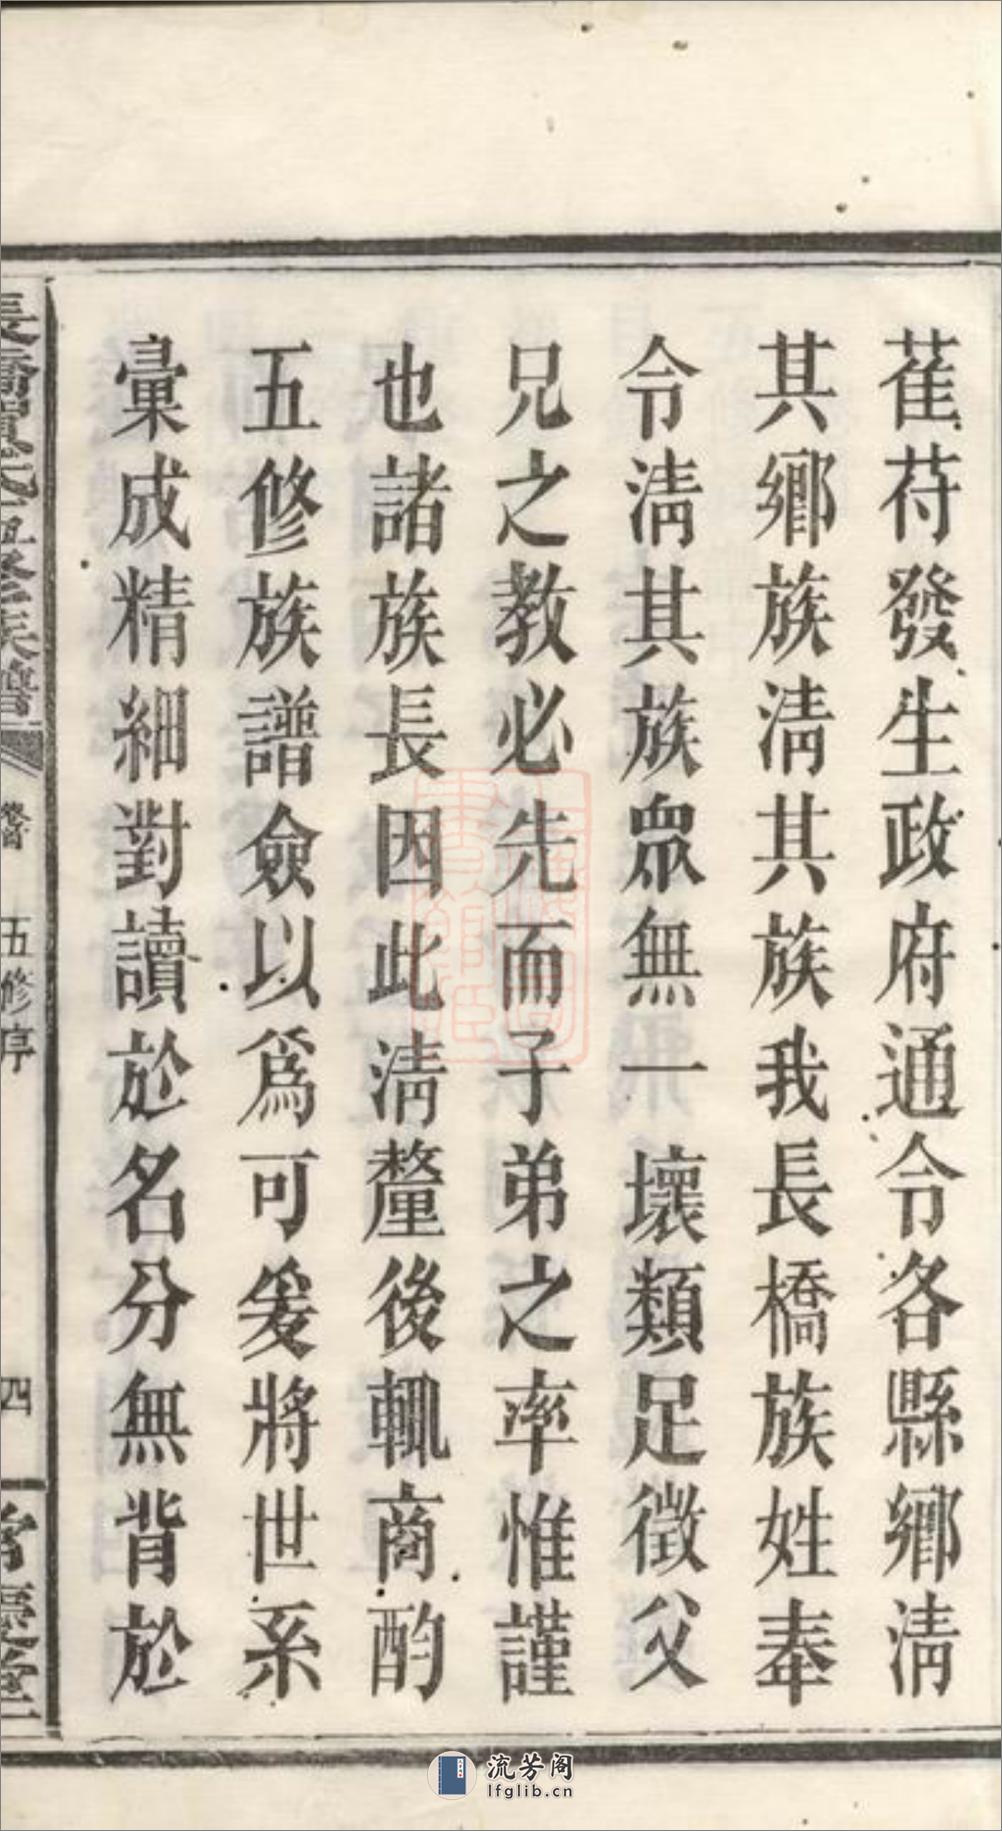 萑苻發生政府通令各縣鄉淸
其鄉族淸其族我長橋族姓奉
令淸其族衆無一壞類足徵父
兄之教必先而子弟之率惟謹
也諸族長因此淸釐後輒商酌
五修族譜僉以爲可爰將世系
彙成精細對讀於名分無背於
五修族譜
五修序
四
流芳阁
lfglib.cn